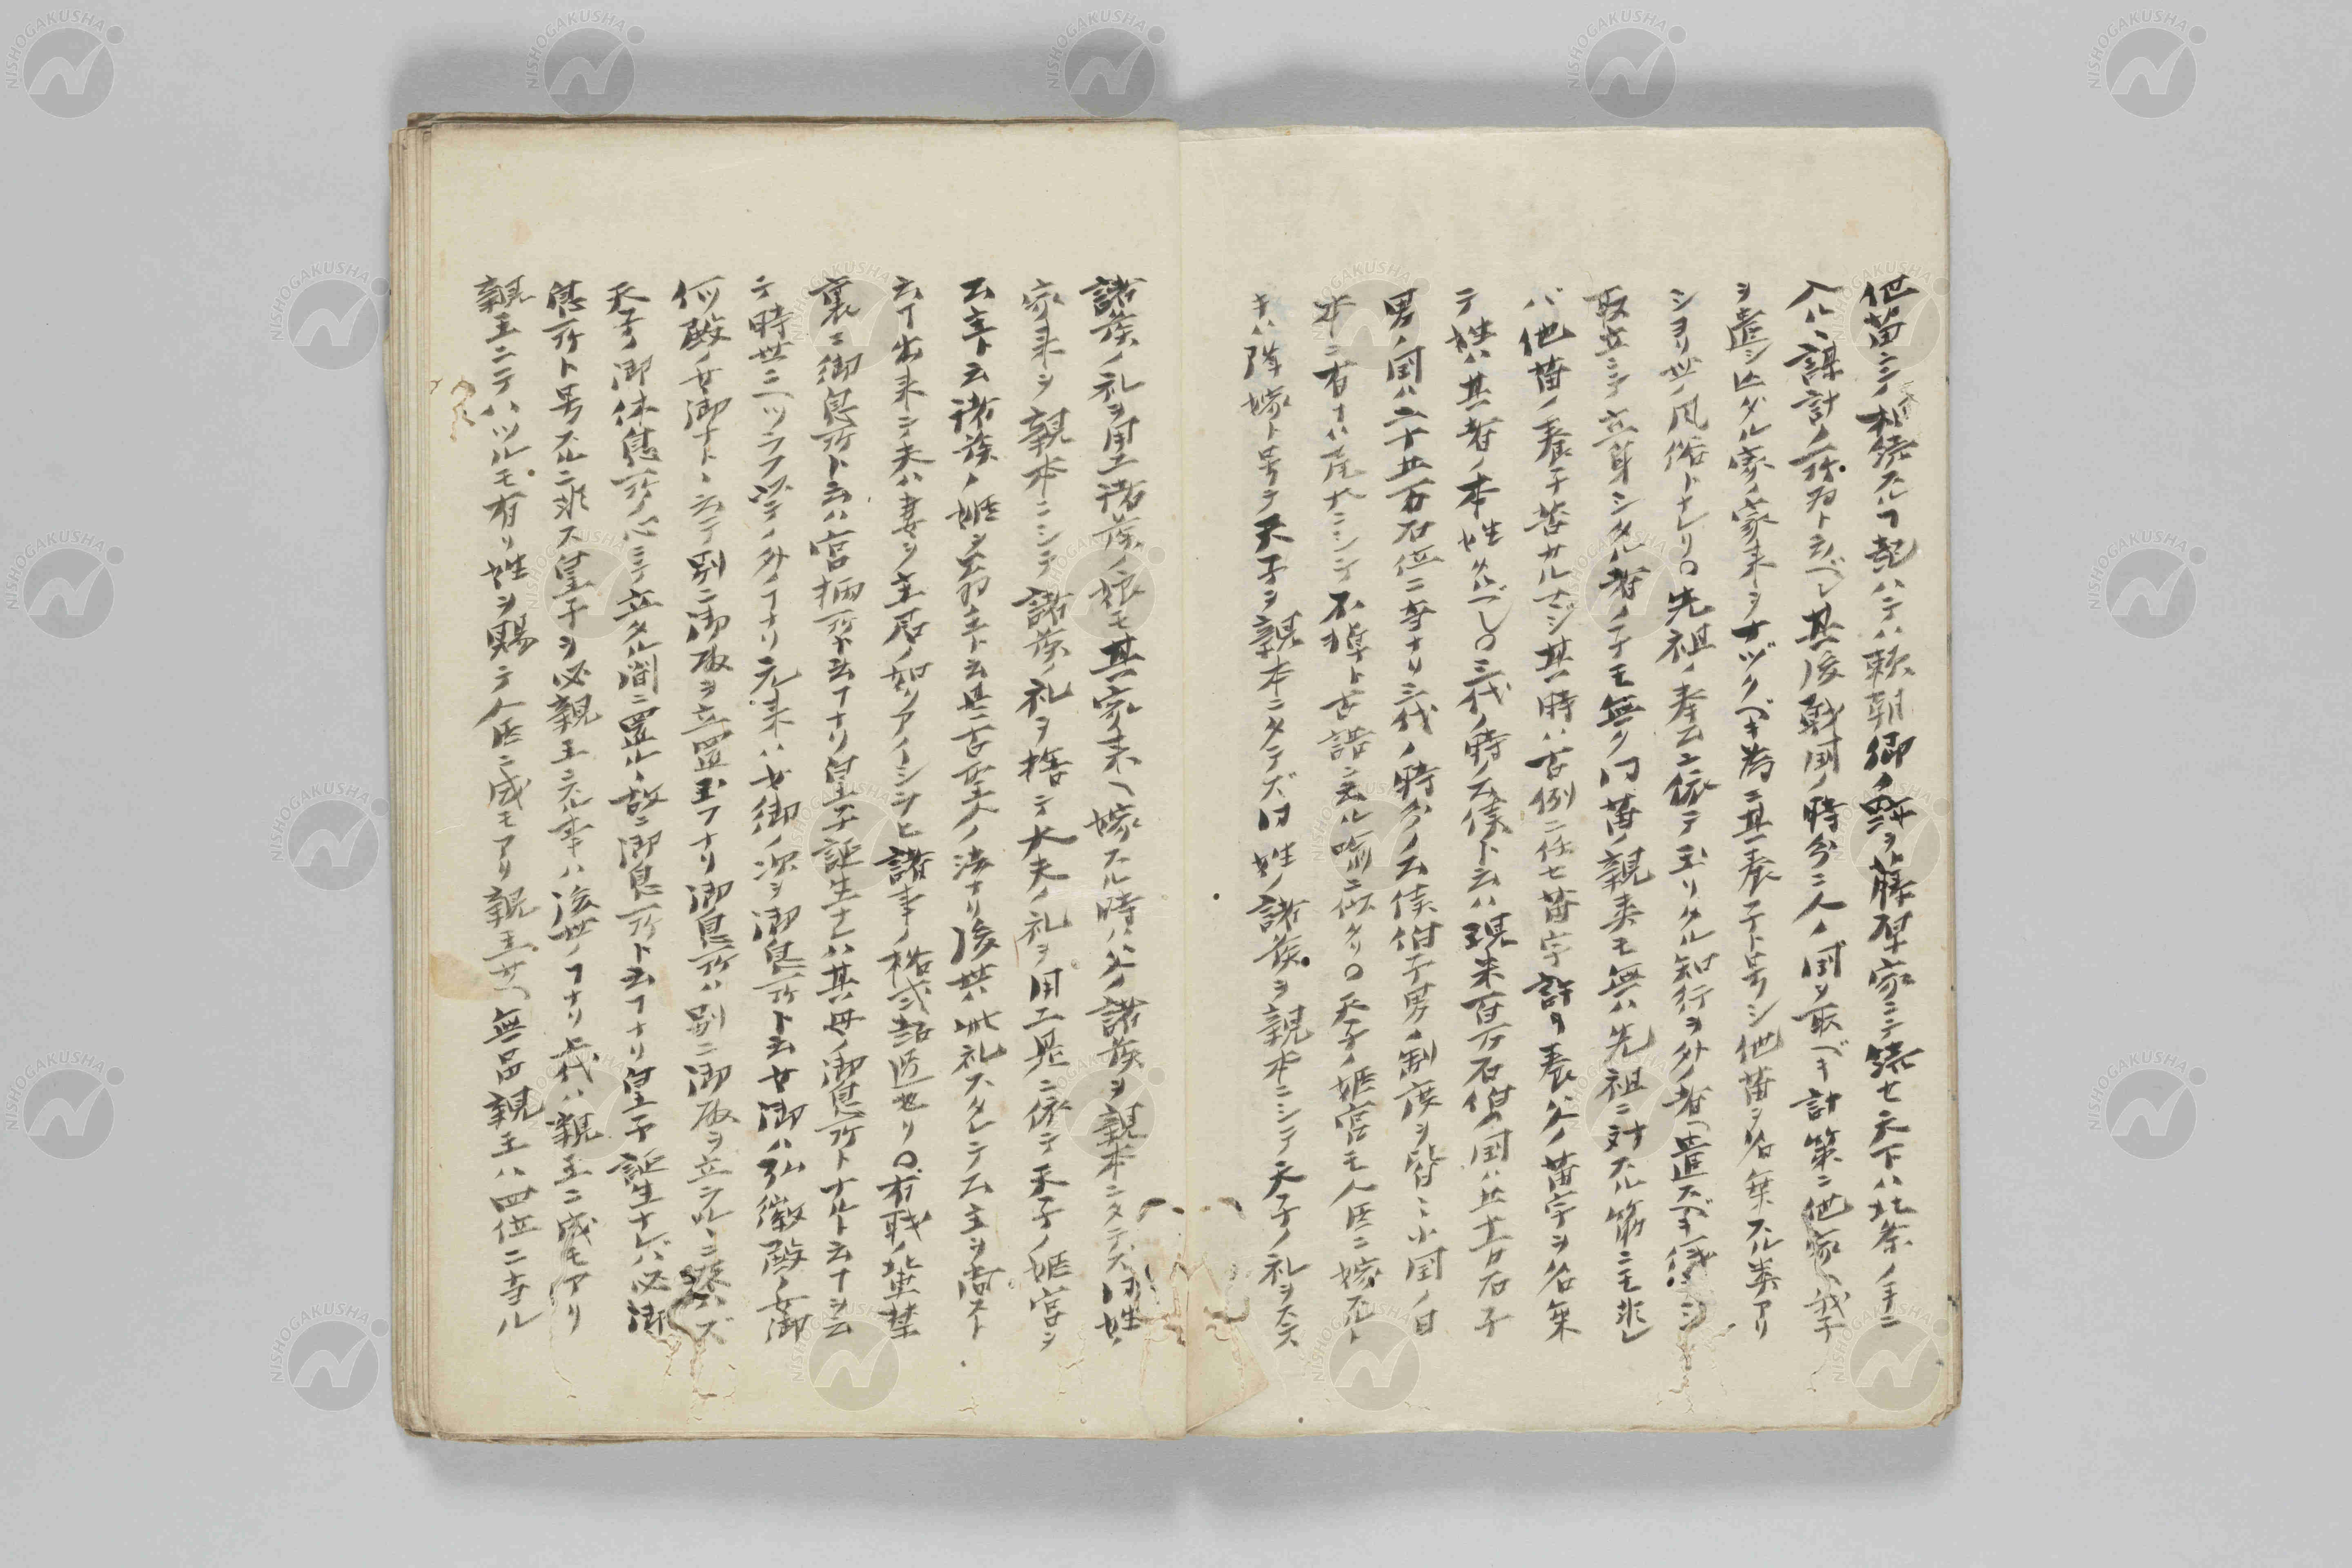 他苗ニテ相続スルヿ起ハテハ頼朝卿ノ跡ヲ藤原家ニテ続セ天下ハ北条ノ手ニ
入ルヽ謀計ノ所為ト云ベシ其後戦国ノ時分ニ人ノ国ヲ取ベキ計策ニ他家ヘ我子
ヲ遣シ亡ダル家ノ家来ヲナヅクベキ為ニ其養子ト号シ他苗ヲ名乗スル类アリ
シヨリ世ノ風俗トナレリ○先祖ノ奉公ニ依テ玉リタル知行ヲ外ノ者ヘ遣スベキ儀ニシ
取立ニテ立身シタル者ノ子モ無ク同苗ノ親类モ無ハ先祖ニ対スル筋ニモ非レ
バ他苗ノ養子苦サルナシ其時ハ古例ニ任セ苗字許ヲ養父ノ苗字ヲ名乗
テ姓ハ其者ノ本姓タルベシ○三代ノ時ノ公侯ト云ハ現米百万石伯ノ国ハ廿十万石子
男ノ国ハ二十五万石位ニ当ナリ三代ノ時分ノ公侯伯子男ノ制度ヲ皆ニ小国ノ日
本ニ有ナハ尾大ニシテ不掉ト古語ニ云ル喩ニ似タリ○天子ノ姫宮モ人臣ニ嫁スルト
キハ降嫁ト号テ天子ヲ親本ニタテズ同姓ノ諸族ヲ親本ニシテ天子ノ礼ヲステ
諸族ノ礼ヲ用エ諸族ノ娘モ其家来ヘ嫁スル時ハ父ノ諸族ヲ親本ニタテズ同姓ノ
家来ヲ親本ニシテ諸族ノ礼ヲ捨テ大夫ノ礼ヲ用エ是ニ依テ天子ノ姫宮ヲ
公主ト云諸族ノ姫ヲ翁主ト云是古聖人ノ法ナリ後世ハ此礼スタレテ公主ヲ尚スト
云ヿ出来シ夫ハ妻ヲ主君ノ如クアイシラヒ諸事ノ格式超過セリ○有職ノ輩禁
裏ニ御息所ト云ハ宮柄所ト云ヿナリ皇子誕生ナレハ其母ノ御息所トナルト云ヿヲ云
テ時世ニヘツラフ以テノ外ノヿナリ元来ハ女御ノ次ヲ御息所ト云女御ハ弘徽殿ノ女御
何ツ殿ノ女御ナトヽ云テ別ニ御殿ヲ立置玉フナリ御息所ハ別ニ御殿ヲ立ラルヽニ及ハズ
天子ノ御休息所ノ心ニテ立タル間ニ置ル故ニ御息所ト云フナリ皇子誕生ナレバ必御
息所ト号スルニ非ス皇子ヲ必親王ニスル事ハ後世ノヿナリ上代ハ親王ニ成モアリ
親王ニテハツルモ有リ姓ヲ賜テ人臣ニ成モアリ親王サヘ無品親王ハ四位ニ当ル
NISHOGAKUSHA